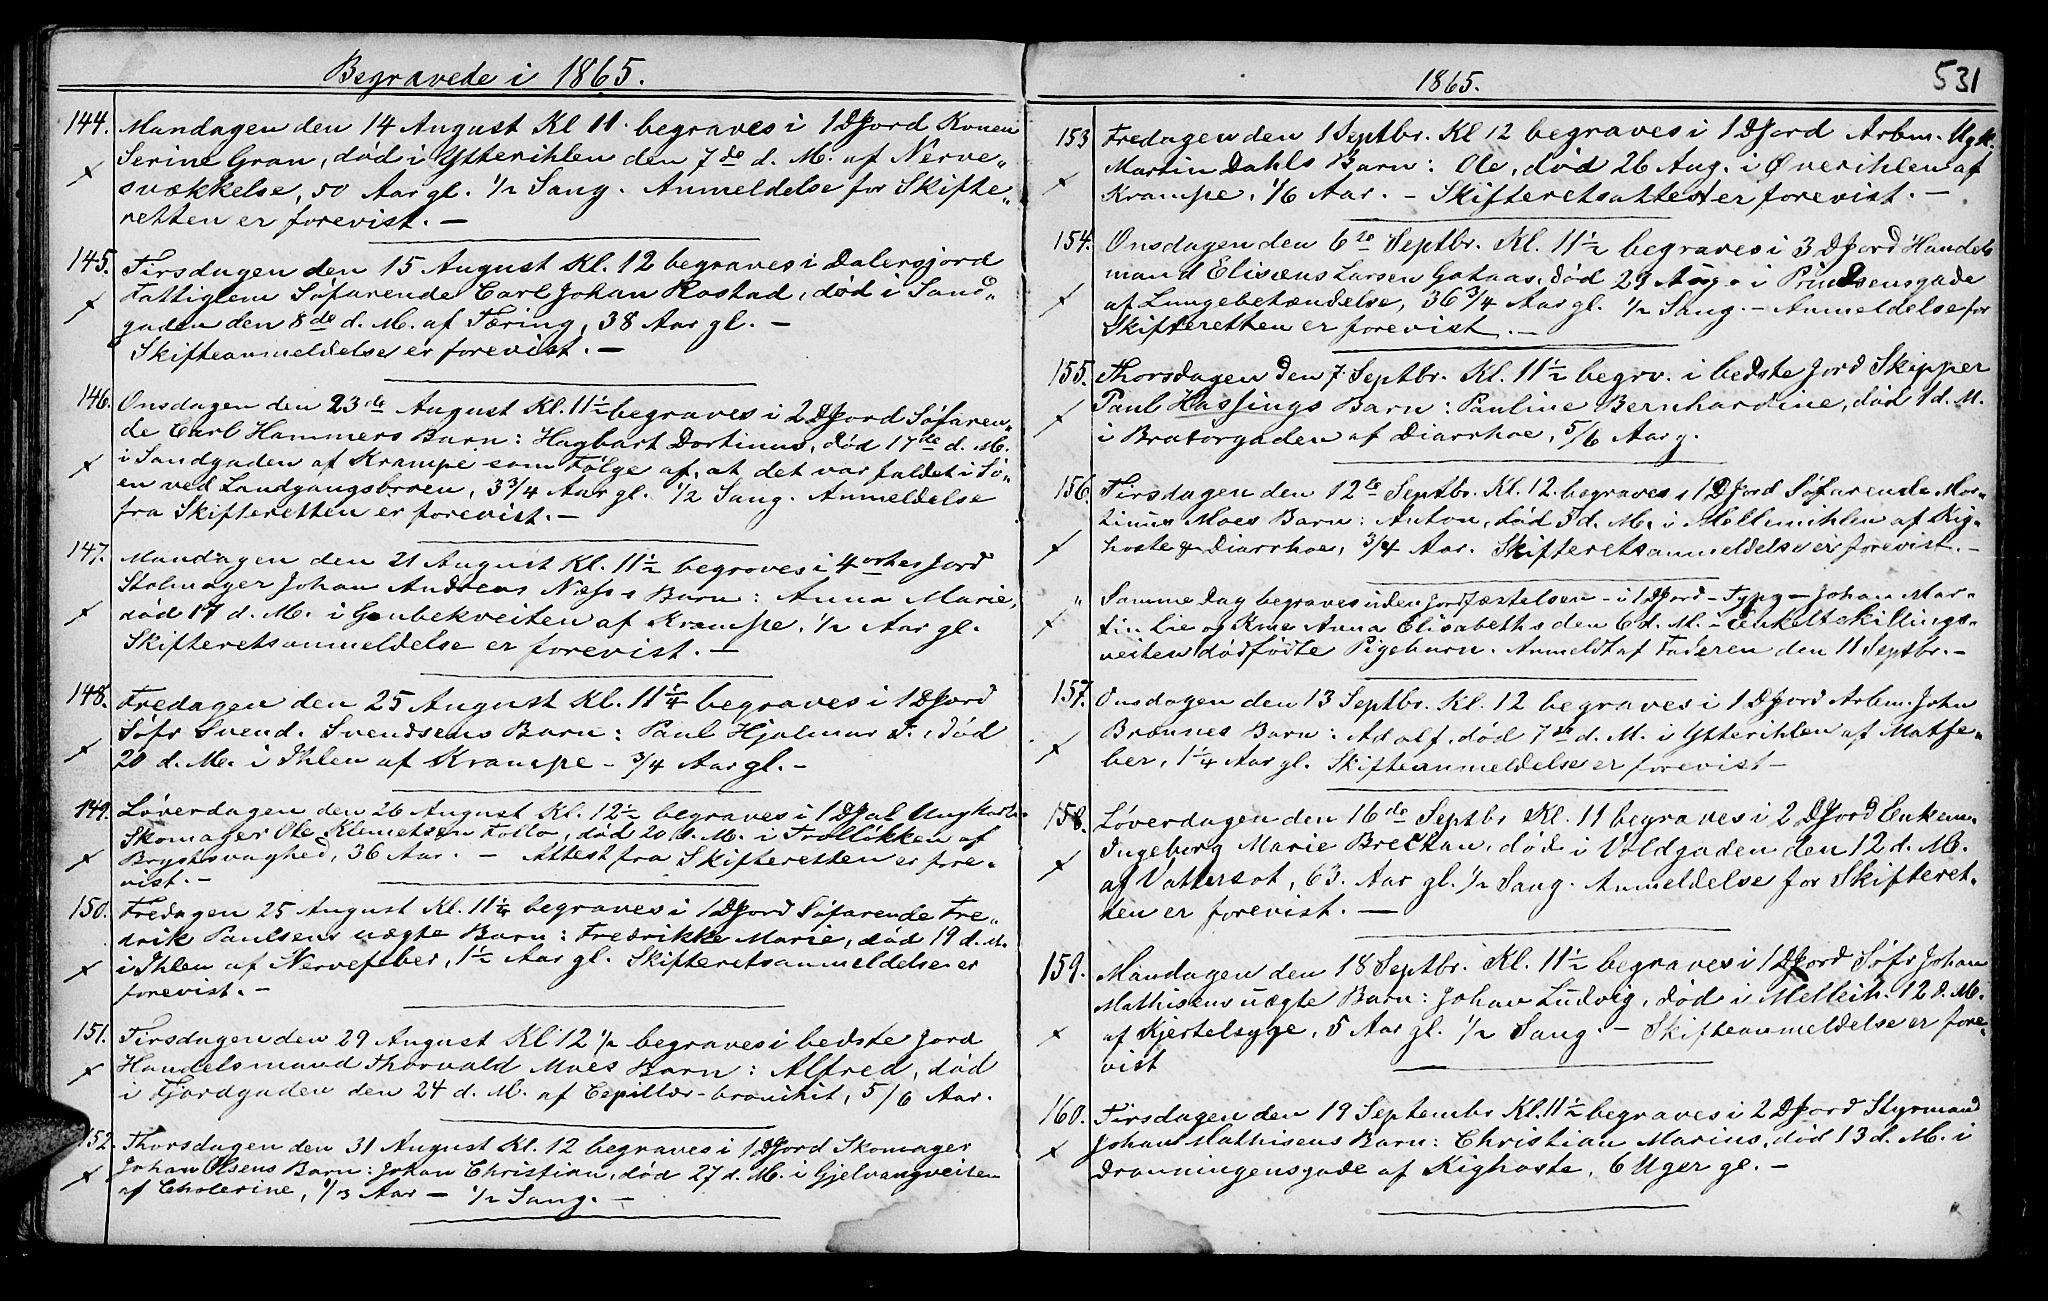 Begravede i 1865.
144. Mandagen den 14 August Kl 11. begraves i 1 D Jord Konen
Serine Gran, død i Ytterihlen den 7de d. M. af Nerve„
svækkelse, 50 Aar gl. 1/2 Sang. Anmeldelse for Skifte„
retten er forevist. —
145. Tirsdagen den 15 August Kl. 12 begraves i Dalersjord
Fattiglem Søfarende Carl Johan Rostad, død i Sand„
gaden den 8de d. M. af Tæring, 38 Aar gl. —
Skifteanmeldelse er forevist. —
146. Onsdagen den 23de August Kl. 11 1/2 begraves i 2 D Jord Søfaren„
de Carl Hammers Barn: Hagbart Dortinus, død 17de d. M.
i Sandgaden af Krampe som Følge af, at det var faldet i Sø„
en ved Landgangsbroen, 3 3/4 Aar gl. 1/2 Sang. Anmeldelse
fra Skifteretten er forevist. —
147. Mandagen den 21 August Kl. 11 1/2 begraves i 4 Jord
Stolmager Johan Andreas Næss's Barn: Anna Marie,
død 17 d. M. i Gaubekveiten af Krampe, 1/2 Aar gl.
Skifteretsanmeldelse er forevist. —
148. Fredagen den 25 August Kl. 11 1/4 begraves i 1 D Jord
Søfr Svend. Svendsens Barn: Paul Hjalmar F., død
20 d. M. i Ihlen af Krampe — 3/4 Aar gl. —
149. Løverdagen den 26 August Kl. 12 1/2 begraves i 1 D Ungkarl
Skomager Ole Klemetsen Follo, død 20 d. M. i Trolløkken af
Brystsvaghed, 36 Aar. — Attest fra Skifteretten er fore„
vist. —
150. Fredagen 25 August Kl. 11 1/4 begraves i 1 D Jord Søfarende Fre„
drik Paulsens uægte Barn: Fredrikke Marie, død 19 d. M.
i Ihlen af Nervefeber, 1 1/2 Aar gl. Skifteretsanmeldelse er
forevist. —
151. Tirsdagen den 29 August Kl 12 1/2 begraves i bedste Jord
Handelsmand Thorvald Moes Barn: Alfred, død
i Fjordgaden den 24 d. M. af Capillær-bronikit, 5/6 Aar.
152. Thorsdagen den 31 August Kl. 12 begraves i 1 D Jord Skomager
Johan Olsens Barn: Johan Christian, død 27 d. M. i Gjelvangveiten
af Cholerine, 1/3 Aar — 1/2 Sang. —
1865. 531
153 Fredagen den 1 Septbr. Kl 12 begraves i 1 D Jord Arbm. Ugk.
Martin Dahls Barn: Ole, død 26 Aug. i Øverihlen af
Krampe, 1/6 Aar. — Skifteretsattest er forevist. —
154. Onsdagen den 6te Septbr. Kl. 11 1/2 begraves i 3 D Jord Handels
mand Elisæus Larsen Gataas, død 29 Aug. i Prindsensgade
af Lungebetændelse, 36 3/4 Aar gl. 1/2 Sang. — Anmeldelse for
Skifteretten er forevist. —
155. Thorsdagen den 7 Septbr. Kl. 11 1/2 begrv. i bedste Jord Skipper
Paul Hassings Barn: Pauline Bernhardine, død 1 d. M.
i Bratørgaden af Diarrhoe, 5/6 Aar g.
156. Tirsdagen den 12te Septbr. Kl. 12 begraves i 1 D Jord Søfarende Mor„
tinus Moes Barn: Anton, død 5 d. M. i Mellemihlen af Kig„
hoste & Diarrhoe, 3/4 Aar. Skifteretsanmeldelse er forevist. —
„ Samme Dag begraves uden Jordfæstelsen — i 1 D Jord — Typg — Johan Mar„
tin Lie og Kone Anna Elisabeths den 6 d. M. i Enkeltskillings„
veiten dødfødte Pigebarn. Anmeldt af Faderen den 11 Septbr. —
157. Onsdagen den 13 Septbr. Kl. 12 begraves i 1 D Jord Arbm. John
Brænnes Barn: Adolf, død 7de d. M. i Ytterihlen af Matfe„
ber, 1 1/4 Aar gl. Skifteanmeldelse er forevist —
158. Løverdagen den 16de Septbr Kl. 11 begraves i 2 D Jord Enkem.
Ingeborg Marie Brechan, død i Voldgaden den 12 d. M.
af Vattersot, 63. Aar gl. 1/2 Sang. Anmeldelse for Skifteret„
ten er forevist. —
159. Mandagen den 18 Septbr. Kl. 11 1/2 begraves i 1 D Jord Søfr Johan
Mathisens uægte Barn: Johan Ludvig, død i Melleih. 12 d. M.
af Kjertelsyge, 5 Aar gl. 1/2 Sang — Skifteanmeldelse er fore„
vist
160. Tirsdagen den 19 Septembr Kl. 11 1/2 begraves i 2 D Jord Styrmand
Johan Mathisens Barn: Christian Marius, død 13 d. M. i
Dronningensgade af Kighoste, 6 Uger gl. —